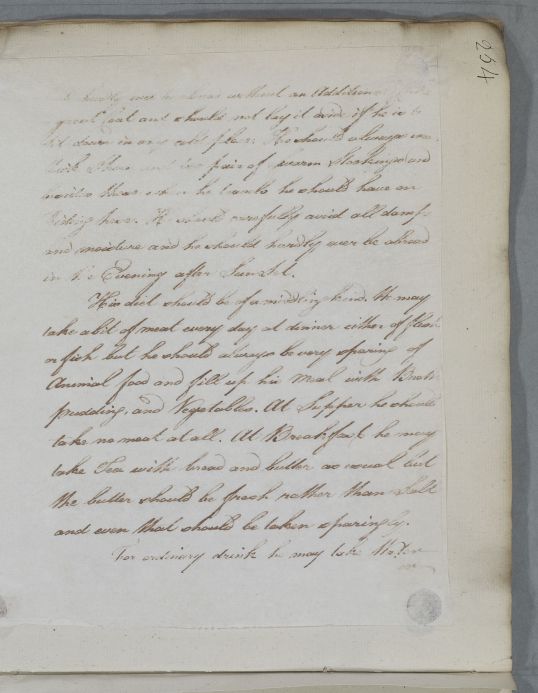 254
hardly ever be abroad without an additional
great Coat and should not lay it aside if he is to
sit down in any cold place. He should always
thick Shoes and a pair of warm Stockings and
besides these when he travels he should have on
riding hose. He should carefully avoid all damp
and moisture and he should hardly ever be abroad
in the Evening after Sun Set.
His diet should be of a middling kind. He may
take a bit of meat every day at dinner either of flesh
or fish but he should always be very sparing of
Animal food and fill up his Meal with Broth
pudding, and Vegetables. At Supper he should
take no meat at all. At Breakfast he may
take Tea with bread and butter as usual but
the butter should be fresh rather than Salt
and even that should be taken sparingly.
For ordinary drink he may take Water
or